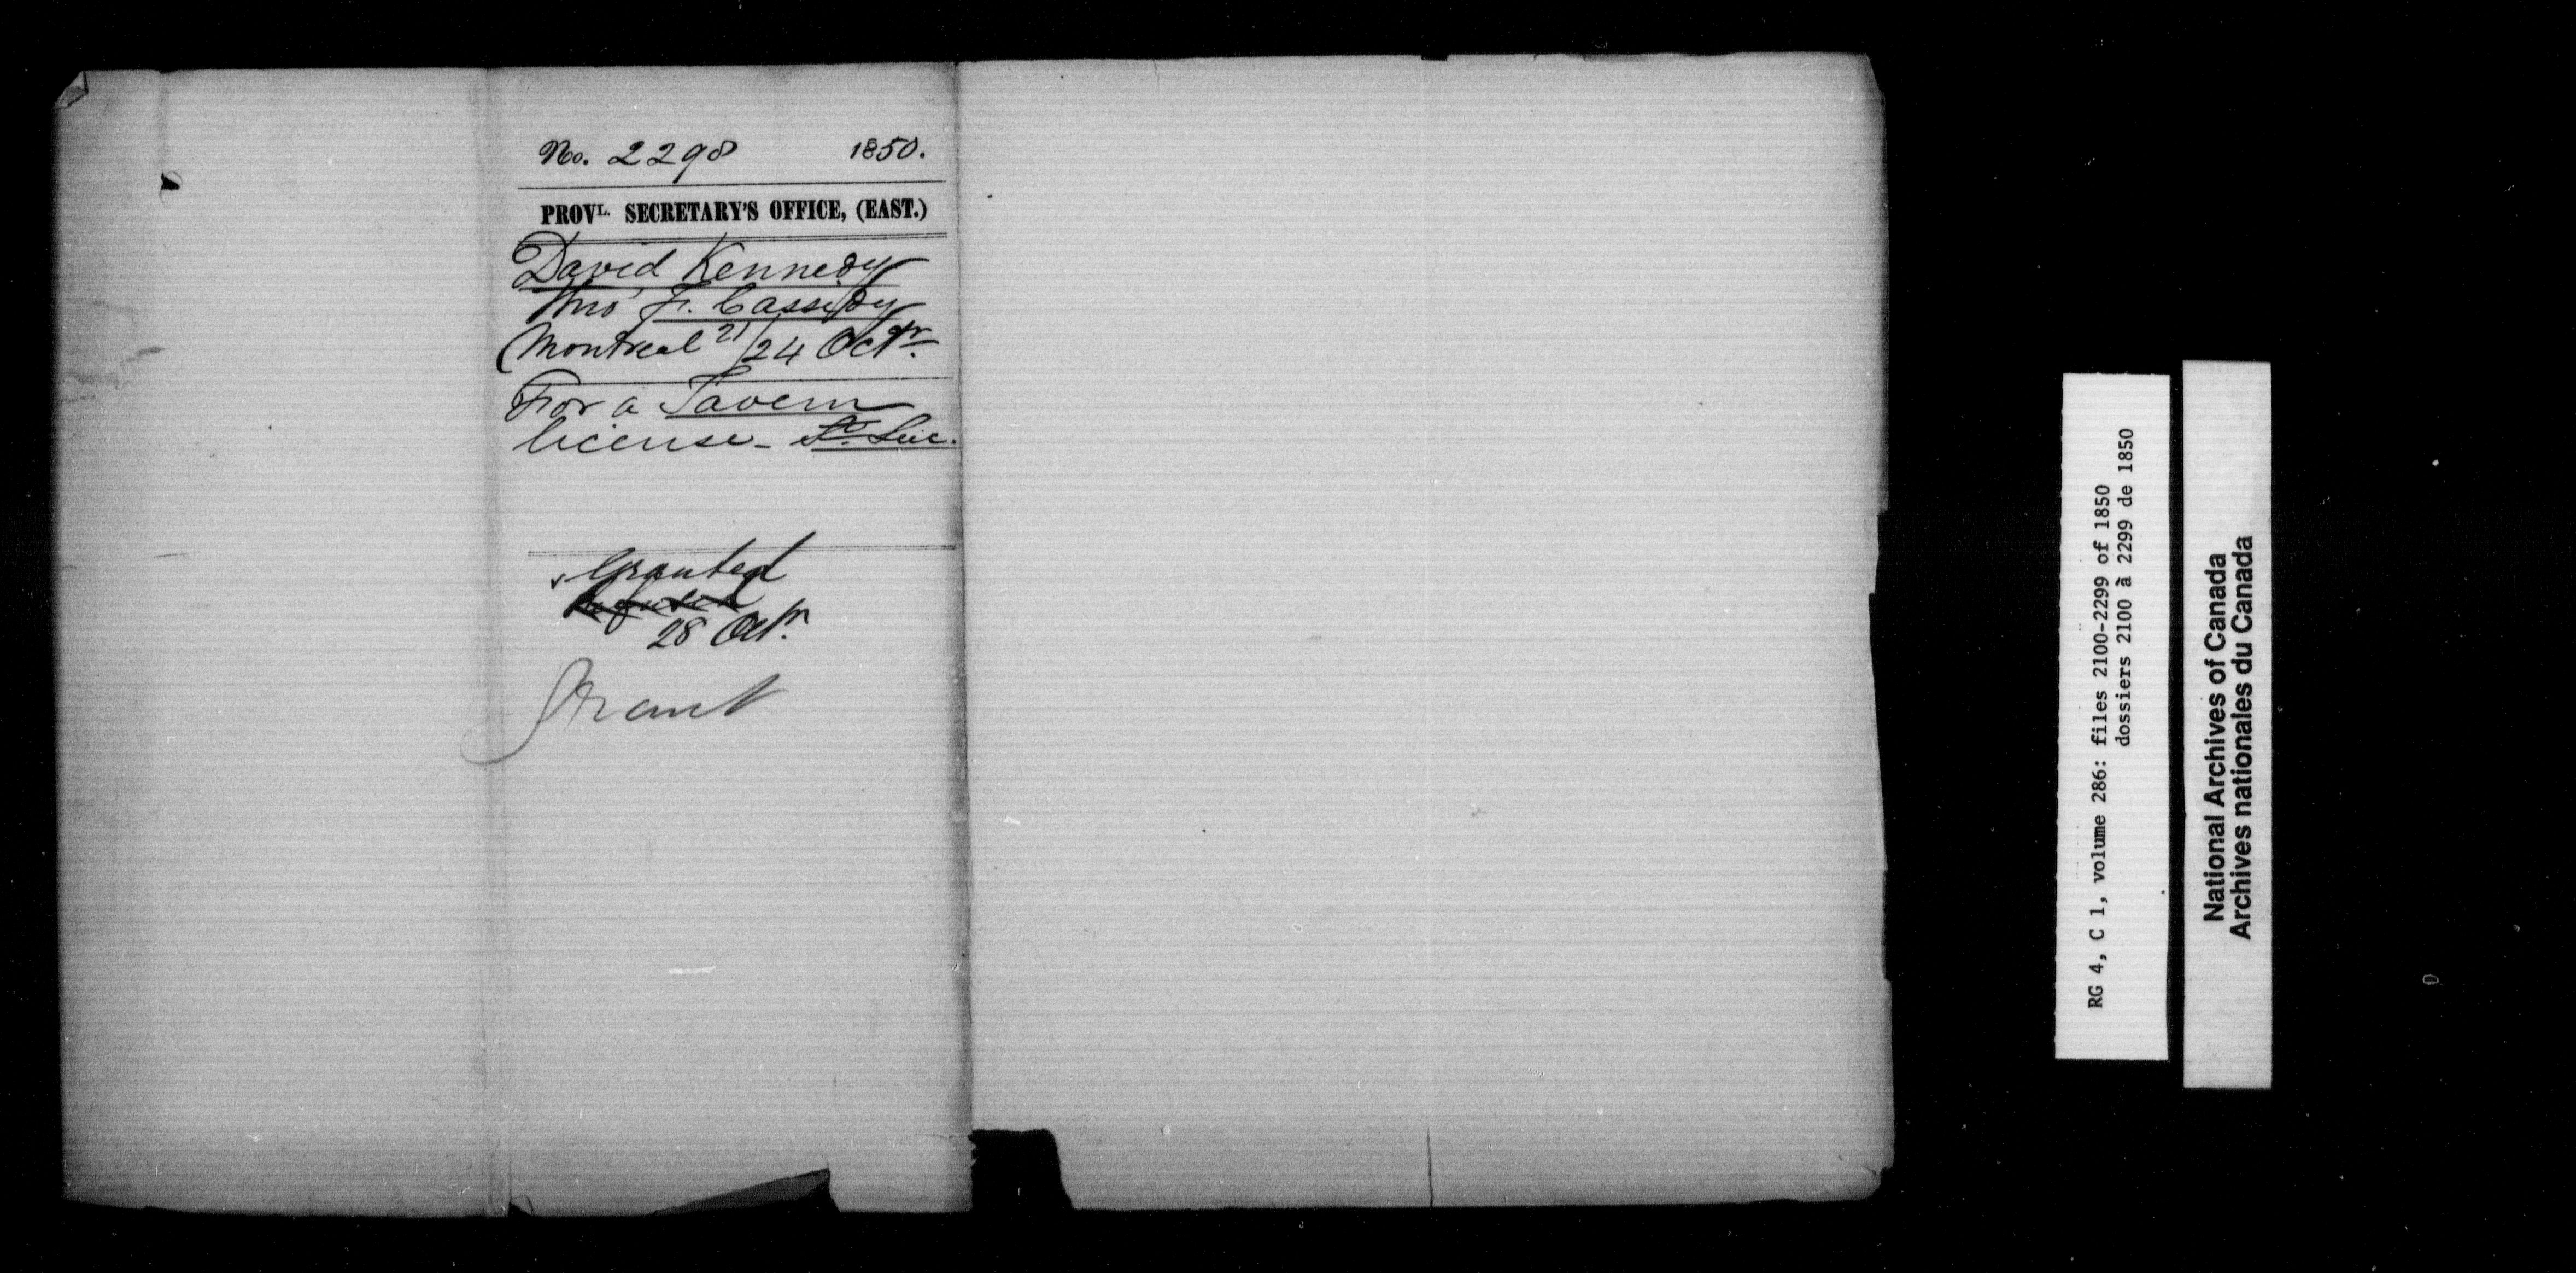 No. 2298 1850.
PROVL. SECRETARY'S OFFICE, (EAST.)
David Kennedy
Thro' F. Cassidy
Montreal 21/24 Octr.
For a Tavern
license - St. Luc.
Granted
Refused
28 Octr.
Grant
RG 4, C 1, volume 286: files 2100-2299 of 1850
dossiers 2100 à 2299 de 1850
National Archives of Canada
Archives nationales du Canada